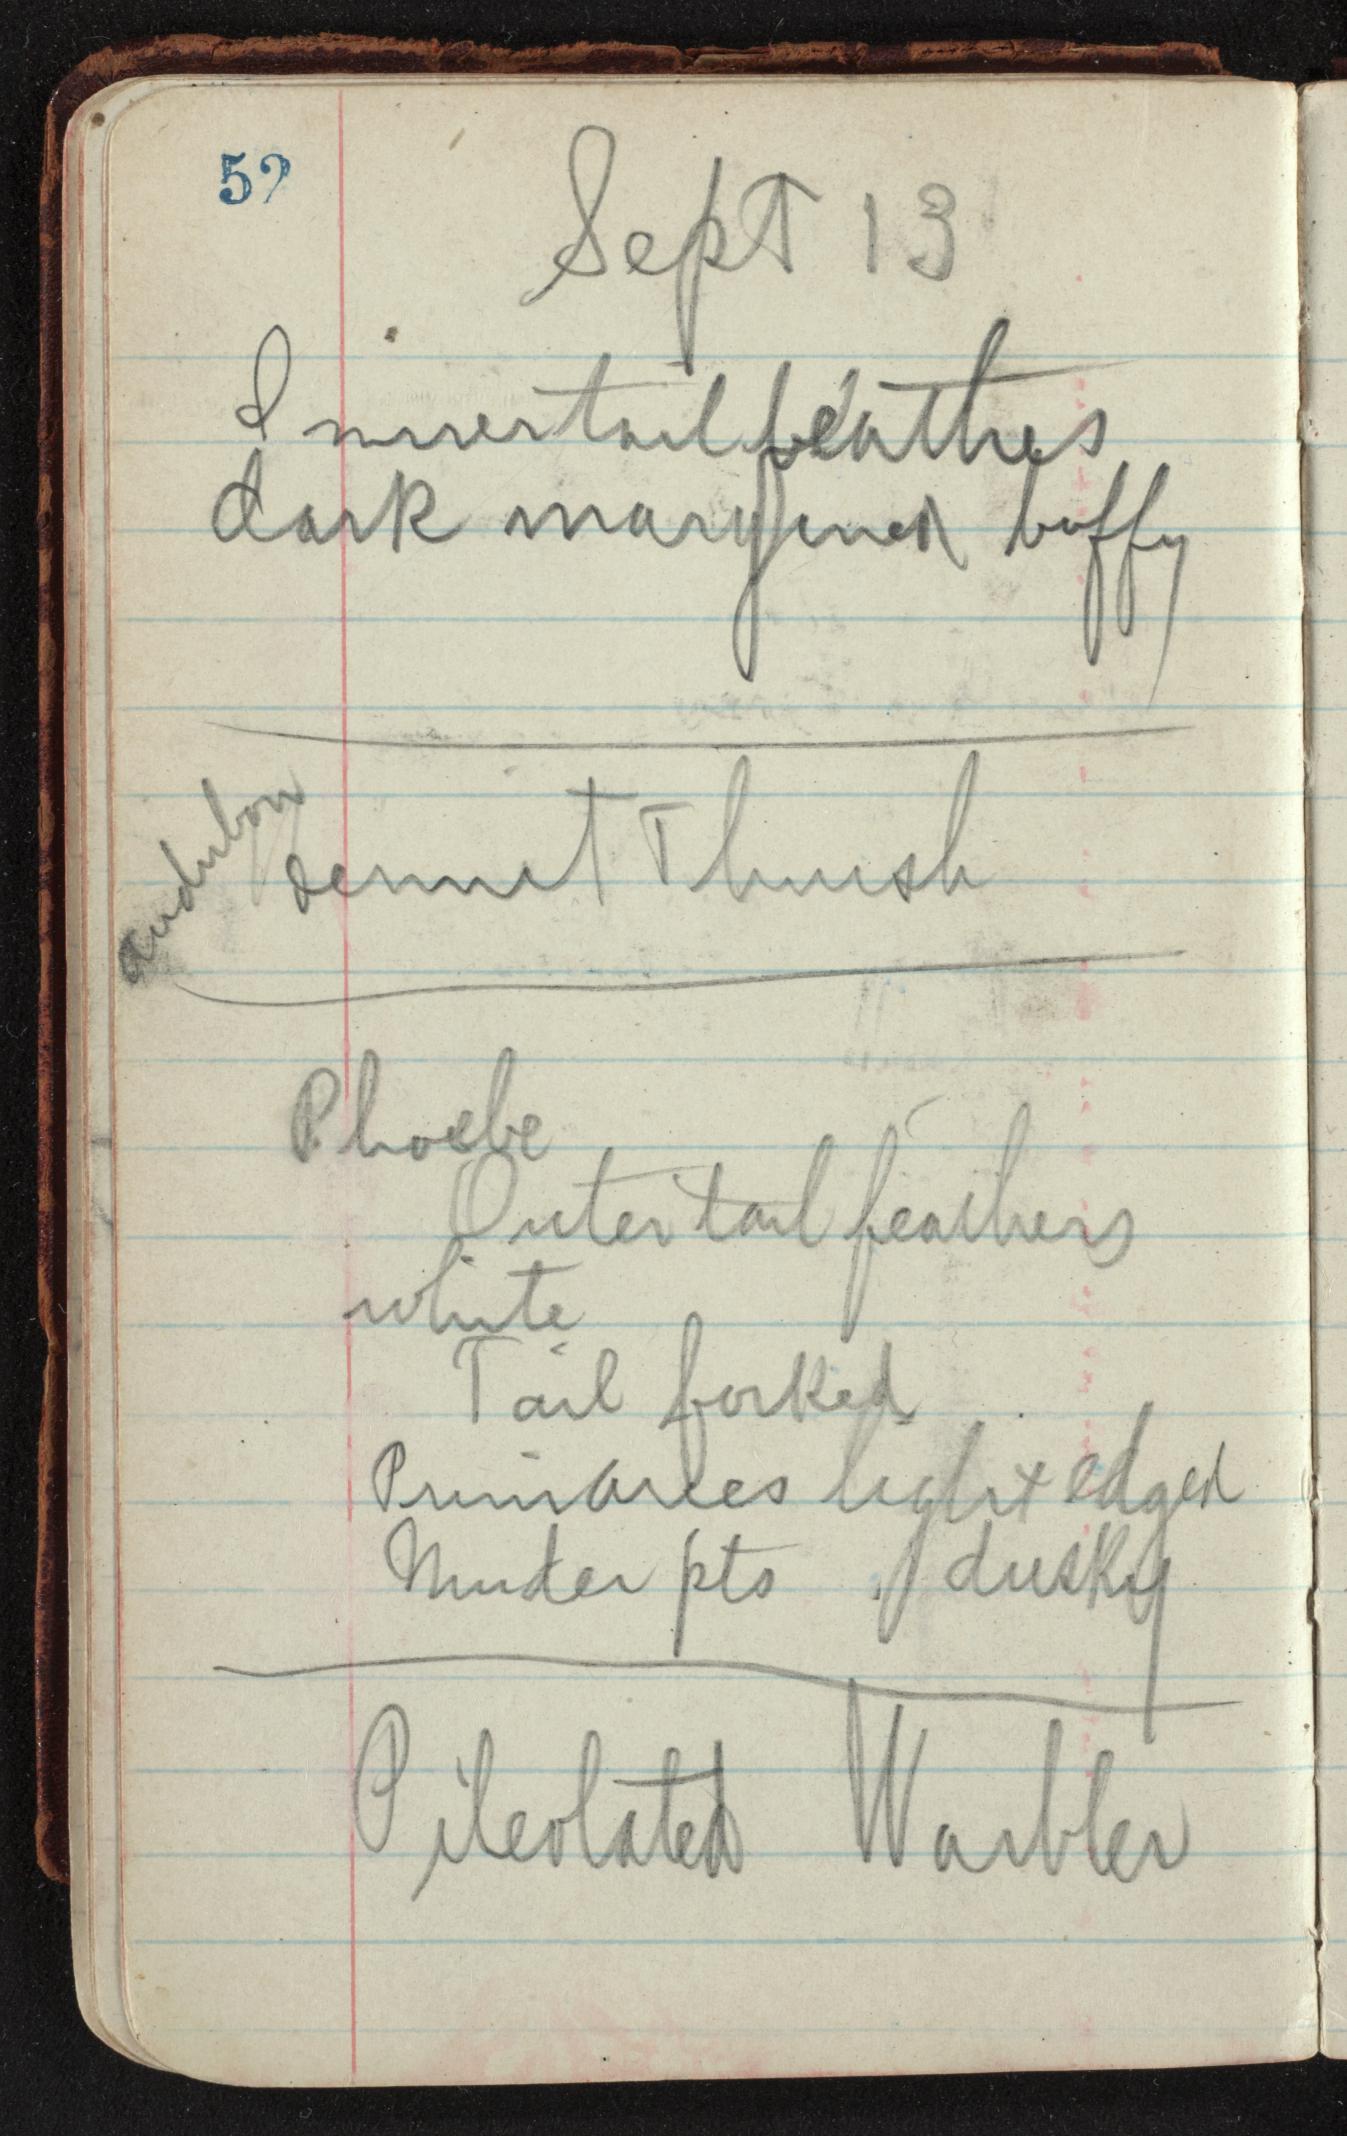 52
Sept 13
Inner tail feathes
dark margined buffy
audubon
Thrush
Phoebe
Outer tail feathers
white
Tail forked
Primaries light edged
Under pts dusky
Pileolated Warbler